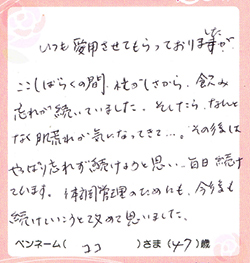 いつも愛用させてもらっておりますが、
ここしばらくの間、忙しさから、飲み
忘れが続いていました。そしたら、なんと
なく肌荒れが気になってきて…。その後は
やっぱり忘れず続けようと思い、毎日続け
ています。体調管理のためにも、今後も
続けていこうと改めて思いました。
ペンネーム( ココ )さま(47)歳